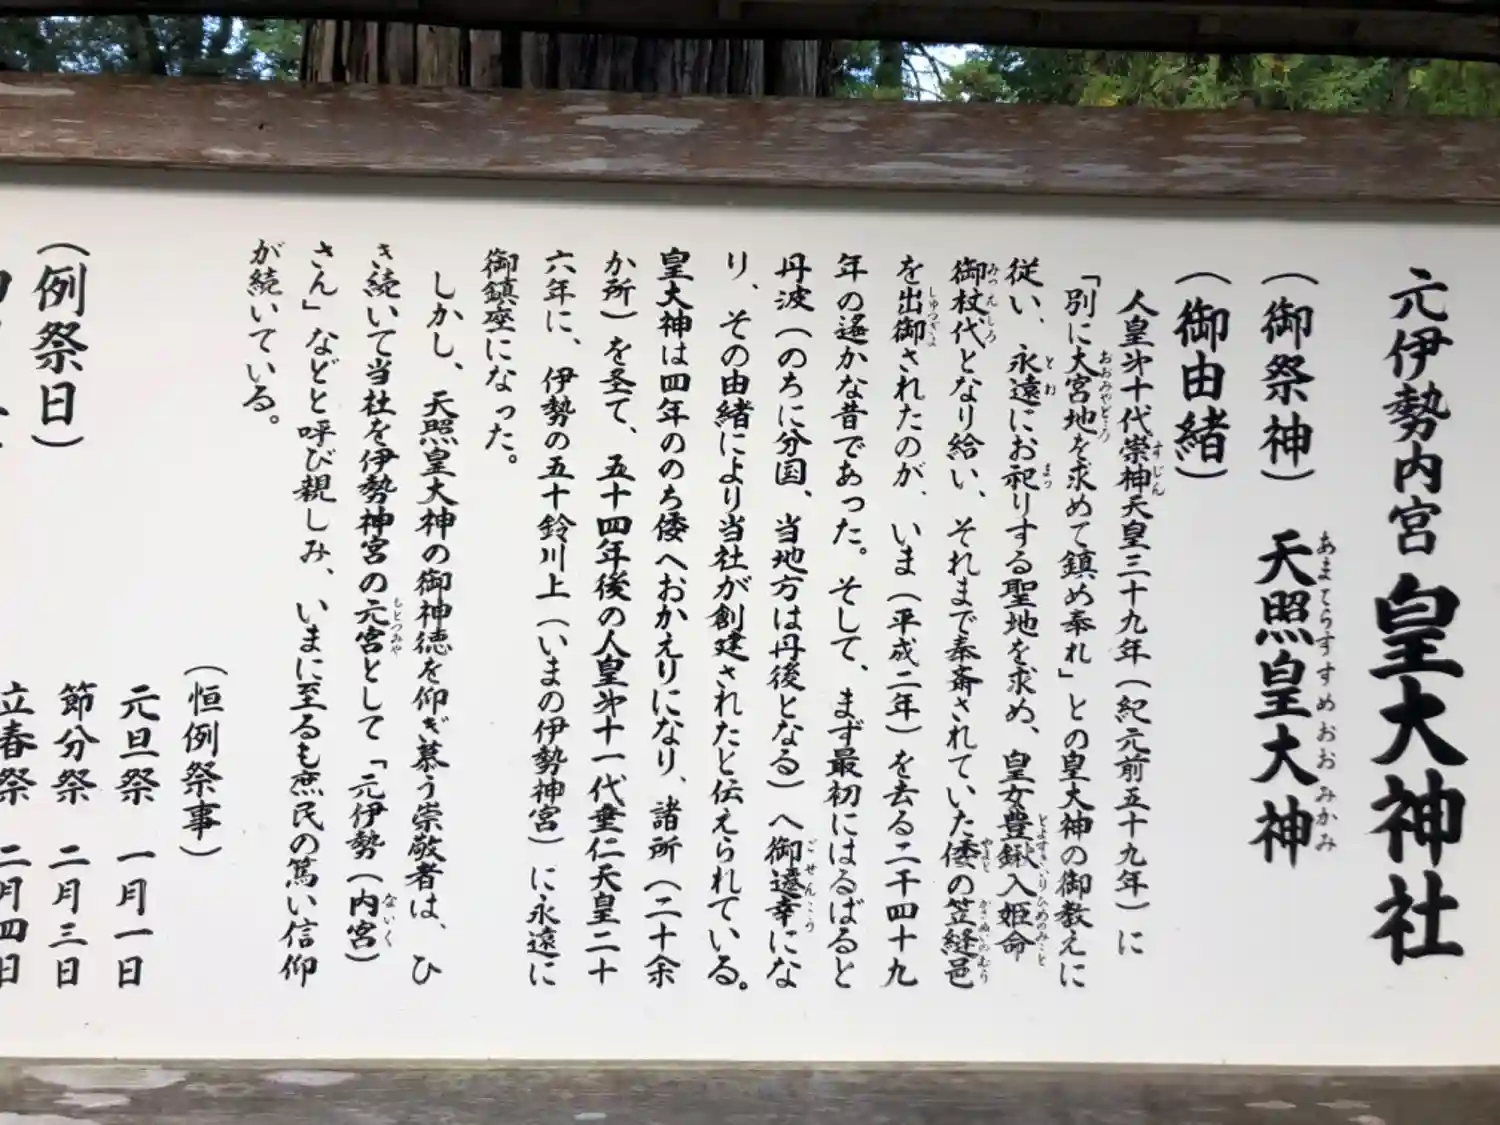 元伊勢内宮 皇大神社
(御祭神) 天照皇大神
あまてらすすめおおみかみ
(御由緒)
人皇第十代崇神天皇三十九年(紀元前五十九年)に
すじん
「別に大宮地を求めて鎮め奉れ」との皇大神の御教えに
おおみやどころ
従い、永遠にお祀りする聖地を求め、皇女豊鍬入姫命
とわ まつ とよすきいりひめのみこと
御杖代となり給い、それまで奉斎されていた倭の笠縫邑
みつえしろ やまと かさぬいのむら
を出御されたのが、いま(平成二年)を去る二千四十九
しゅつぎょ
年の遙かな昔であった。そして、まず最初にはるばると
丹波(のちに分国、当地方は丹後となる)へ御遷幸にな
ごせんこう
り、その由緒により当社が創建されたと伝えられている。
皇大神は四年ののち倭へおかえりになり、諸所(二十余
か所)を圣て、五十四年後の人皇第十一代垂仁天皇二十
六年に、伊勢の五十鈴川上(いまの伊勢神宮)に永遠に
御鎮座になった。
しかし、天照皇大神の御神徳を仰ぎ慕う崇敬者は、ひ
き続いて当社を伊勢神宮の元宮として「元伊勢(内宮)
もとつみや ないく
さん」などと呼び親しみ、いまに至るも庶民の篤い信仰
が続いている。
(恒例祭事)
元旦祭 一月一日
節分祭 二月三日
立春祭 二月四日
(例祭日)